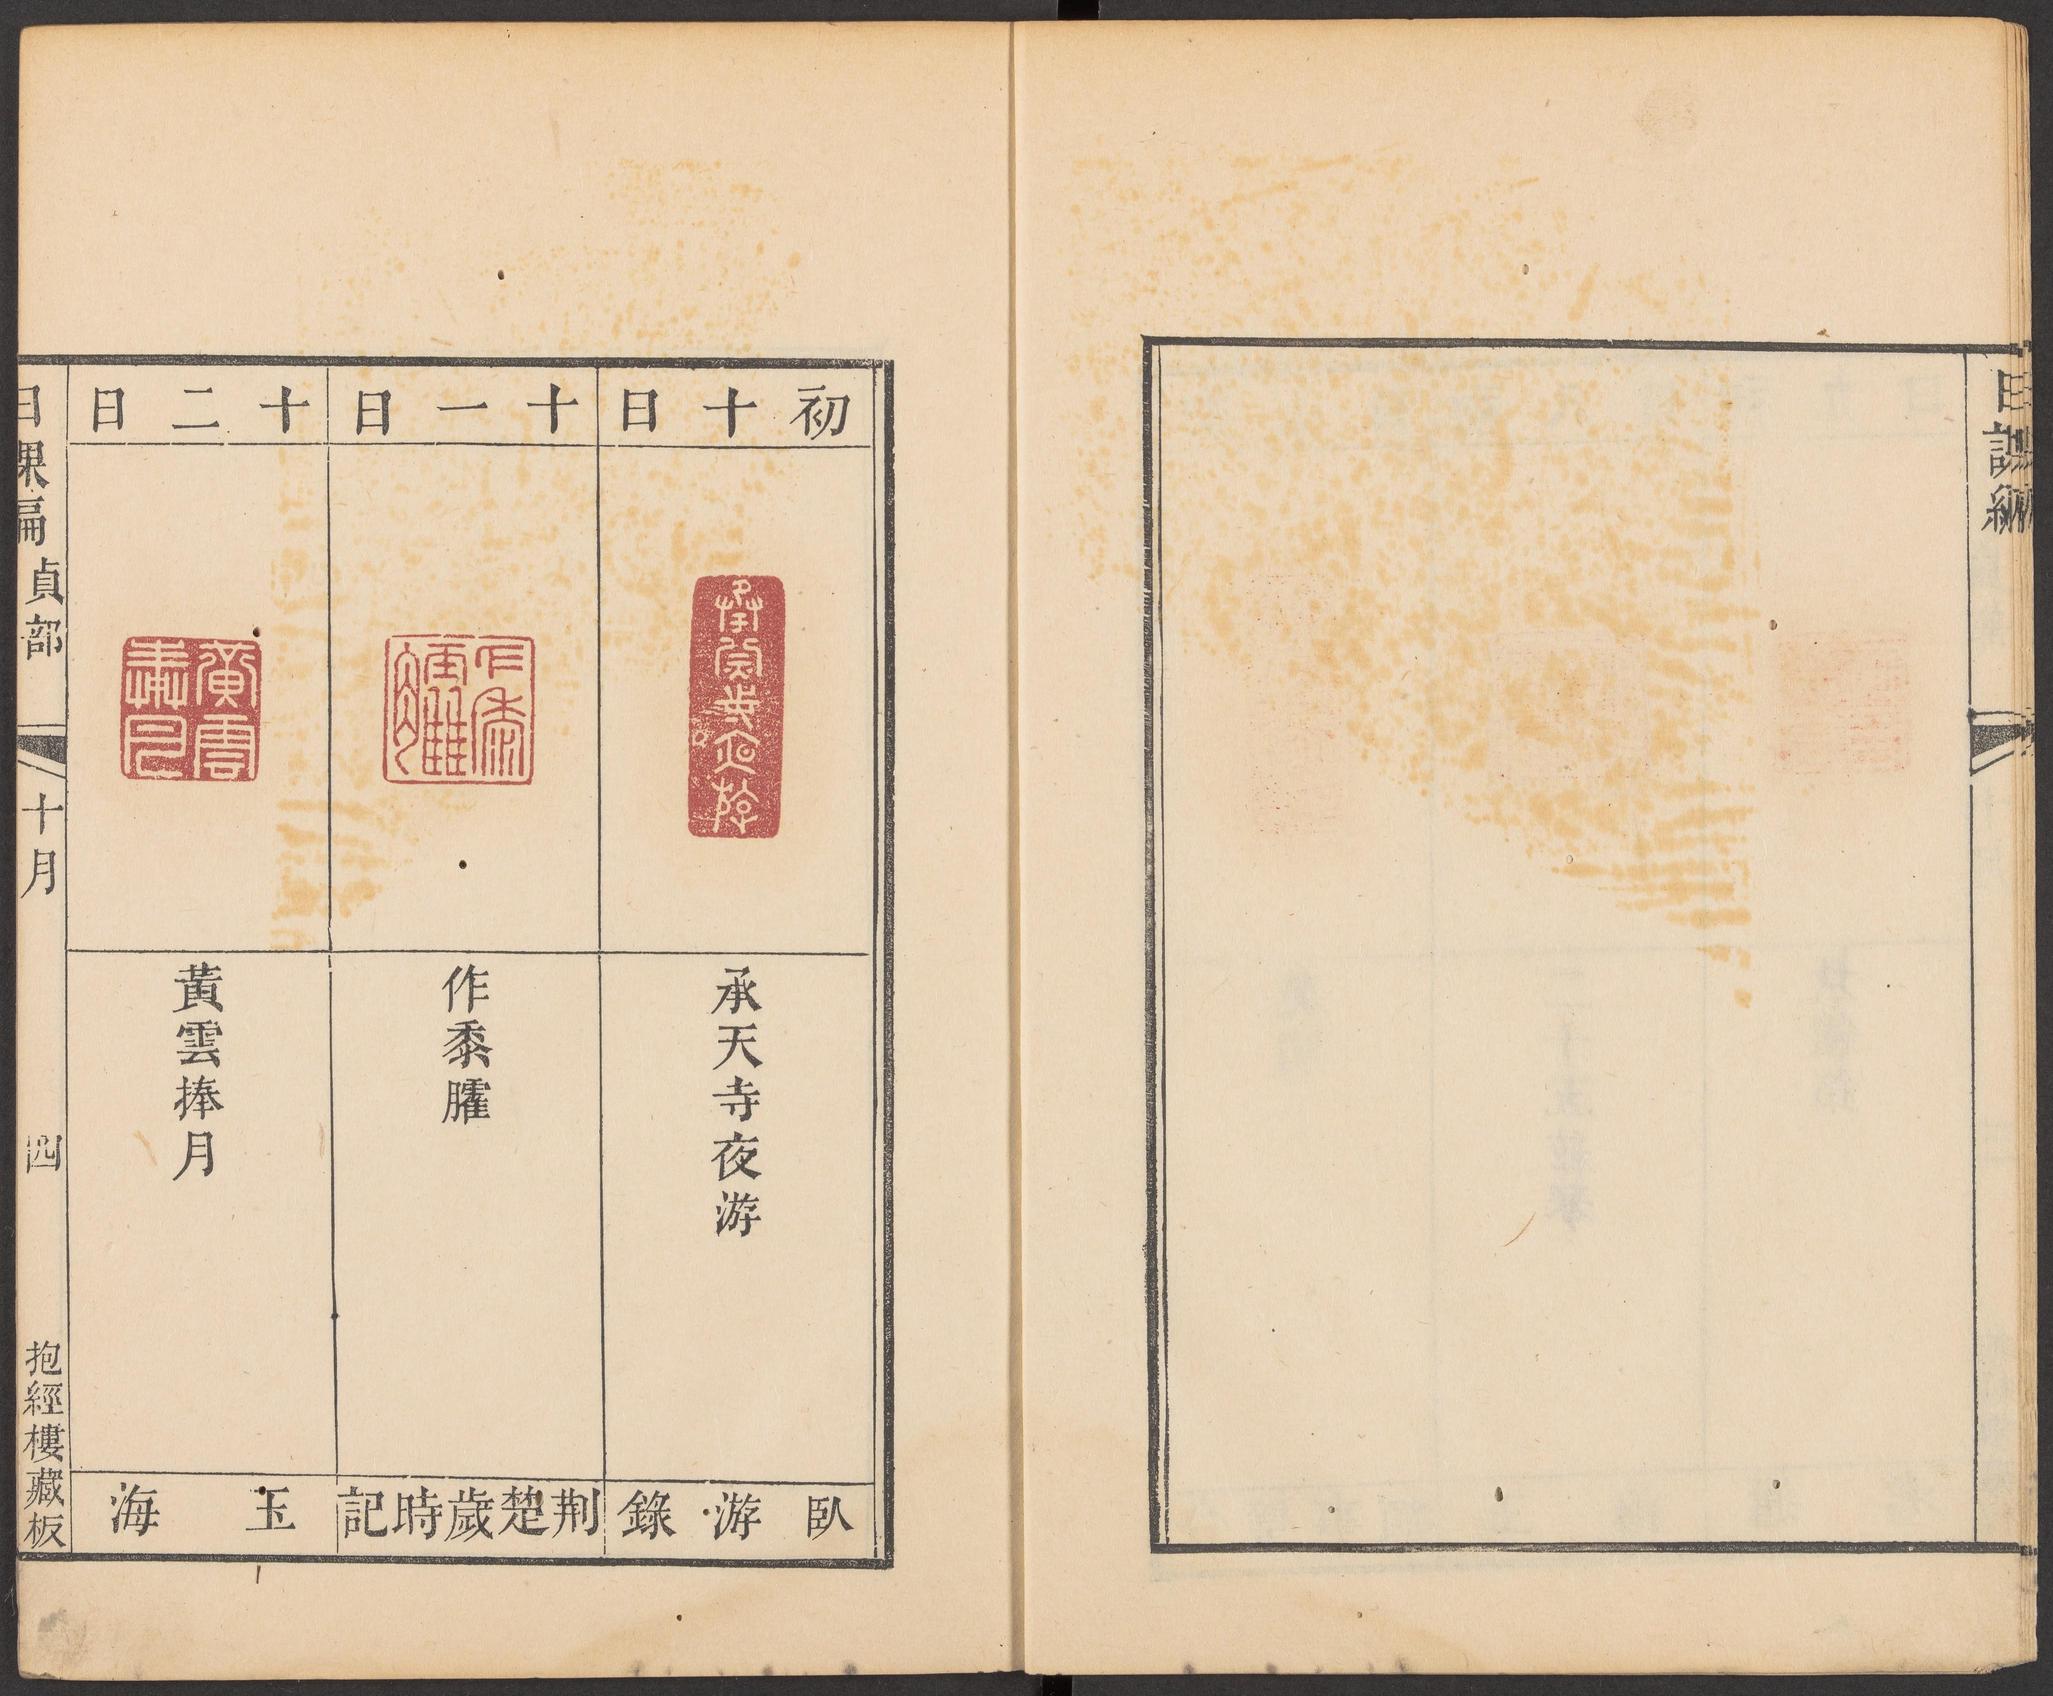 日課編
初十日
承天寺夜游
臥游錄
十一日
作黍臛
荆楚歲時記
十二日
黃雲捧月
玉海
日課編 貞部 十月 四 抱經樓藏板